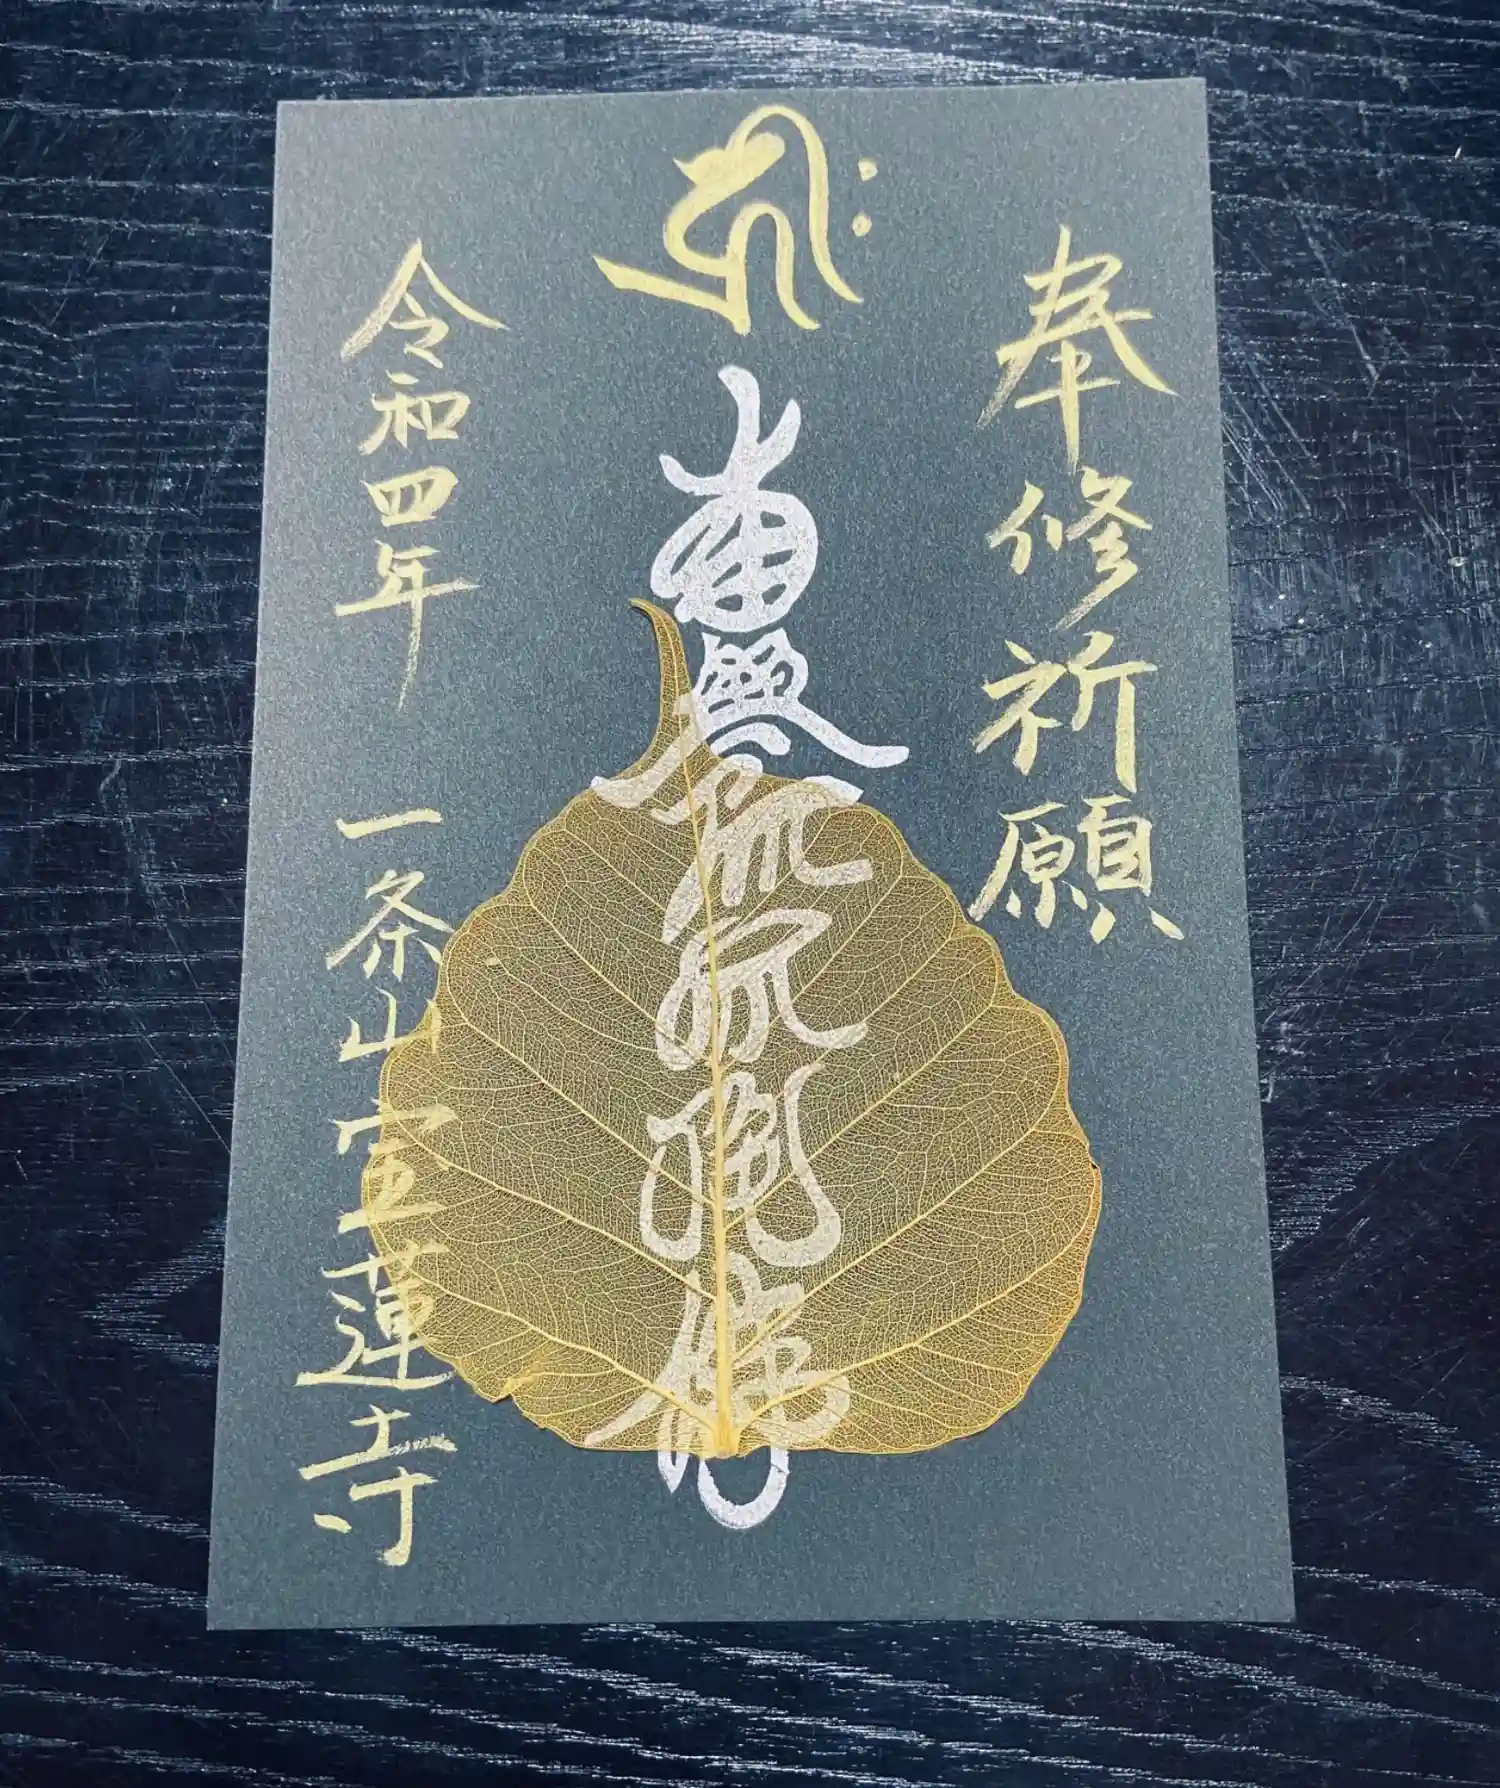 奉修祈願
𑖮𑖿𑖨𑖱𑖾
南無阿弥陀佛
令和四年 一条山宝蓮寺